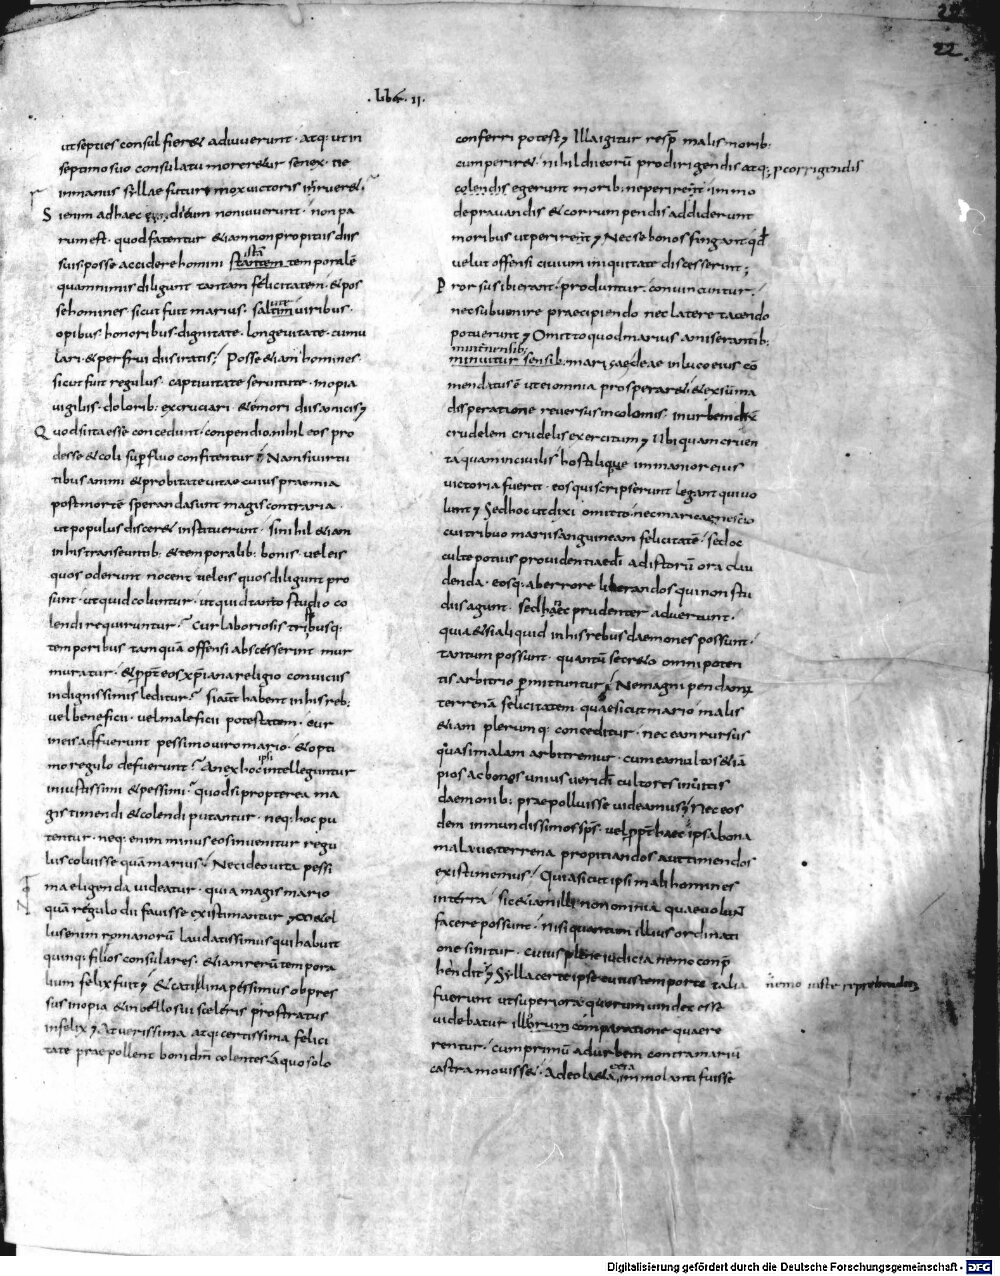 22
· liber · II ·
ut septies consul fieret adiuverunt · atq: ut in
septimo suo consulatu moreretur senex · ne
in manus syllae futuri mox victoris inrueret ·
S ienim ad haec eum dii eum non iuverunt · non pa
rum est · quod fatentur etiam non propitiis diis
suis posse accidere homini tantem temporalē
ista
quam nimis diligunt tantam felicitatem · et pos
se homines sicut fuit marius · salutem viribus ·
opibus honoribus · dignitate · longevitate · cumu
lari · et perfrui diis iratis; Posse etiam homines
sicut fuit regulus · captivitate servitute · inopia
vigiliis · dolorib: excruciari · et emori diis amicis;
Q uod si ita esse concedunt · conpendio nihil eos pro
desse et coli superfluo confitentur; Nam si virtu
tibus animi et probitate vitae cuius praemia
post mortē speranda sunt magis contraria ·
ut populus disceret instituerunt · si nihil etiam
in his transeuntib: et temporalib: bonis · vel eis
quos oderunt nocent vel eis quos diligunt pro
sunt · ut quid coluntur · ut quid tanto studio co
lendi requiruntur? Cur laboriosis tristibusq:
temporibus tamquā offensi abscesserint mur
muratur · et ppt eos xpiana religio conviciis
indignissimis leditur? si aut habent in his reb:
vel beneficii · vel maleficii potestatem · cur
in eis adfuerunt pessimo viro mario · et opti
mo regulo defuerunt? An ex hoc intelleguntur
ipsi
iniustissimi et pessimi · quod si propterea ma
gis timendi et colendi putantur · neq: hoc pu
tentur · neq: enim minus eos invenitur regu
lus coluisse quā marius; Nec ideo vita pessi
ma eligenda videatur · quia magis mario
quā regulo dii favisse existimantur; Metel
lus enim romanorū laudatissimus qui habuit
quinq: filios consulares · etiam rerū tempora
lium felix fuit; et catilina pessimus obpres
sus inopia et in bello sui sceleris prostratus
infelix; At verissima atq: certissima felici
tate praepollent boni dm colentes · a quo solo
conferri potest; Illa igitur resp malis morib:
cum periret · nihil dii eorū pro dirigendis atq: p corrigendis
colendis egerunt morib: ne perirent · immo
depravandis et corrumpendis addiderunt
moribus ut perirent; Nec se bonos fingant qd
velut offensi civium iniquitate discesserint;
P rorsus ibi erant · produntur · convincuntur;
nec subvenire praecipiendo nec latere tacendo
potuerunt; Omitto quod marius a miserantib:
minturnensib:
minuitur sensib: maricae deae in luco eius cō
mendatus ē ut ei omnia prosperaret · et ex sūma
disperatione reversus incolomis · in urbem dux
crudelem crudelis exercitum; Ubi quam cruen
ta quam incivilis hostilique immanior eius
victoria fuerit · eos qui scripserunt legant qui vo
lunt; Sed hoc ut dixi omitto · nec maricae nescio
cui tribuo marii sanguineam felicitatē · sed oc
culte potius providentiae di ad istorū ora clau
denda · eosq: ab errore liberandos qui non stu
diis agunt · sed haec prudenter advertunt ·
quia etsi aliquid in his rebus daemones possunt ·
tantum possunt · quantū secreto omnipoten
tis arbitrio permittuntur; Ne magni pendamus
terrenā felicitatem · quae sicut mario malis
etiam plerumq: conceditur · nec eam rursus
quasi malam arbitremur · cum ea multos etiā
pios ac bonos unius veri di cultores invitis
daemonib: praepolluisse videamus; Nec eos
dem inmundissimos sps · vel ppt haec ipsa bona
malave terrena propitiandos aut timendos
existimemus; Quia sicut ipsi mali homines
in terra · sic etiam illi non omnia quae volunt
facere possunt · nisi quantum illius ordinati
one sinitur · cuius plene iudicia nemo conp
hendit; Sylla certe ipse cuius tempora talia nemo iuste reprehendit
fuerunt ut superiora quorum vindex esse
videbatur illorum comparatione quaere
rentur · cum primū ad urbem contra mariū
castra movisset · Adeo laeta exta immolanti fuisse
Digitalisierung gefördert durch die Deutsche Forschungsgemeinschaft - DFG